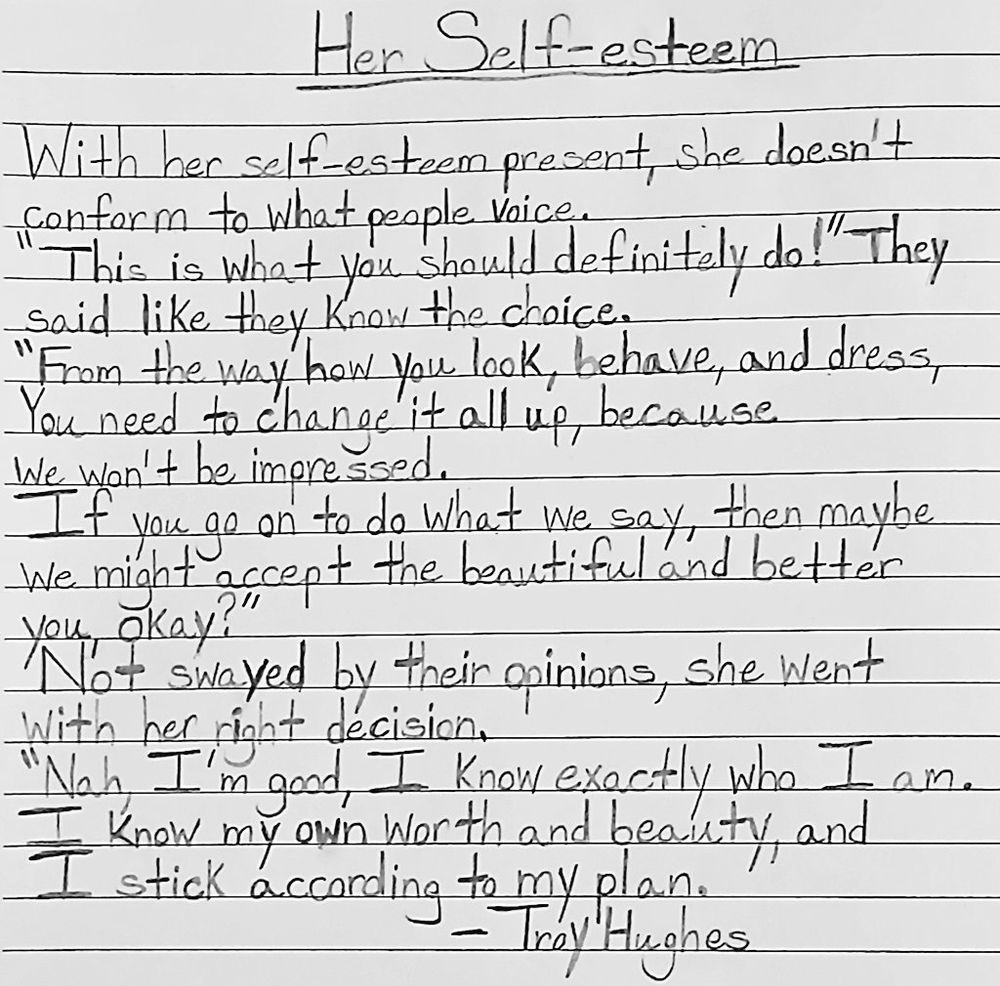 Her Self-esteem
With her self-esteem present, she doesn't
conform to what people voice.
"This is what you should definitely do!" They
said like they know the choice.
"From the way how you look, behave, and dress,
You need to change it all up, because
we won't be impressed.
If you go on to do what we say, then maybe
we might accept the beautiful and better
you, okay?"
Not swayed by their opinions, she went
with her right decision.
"Nah, I'm good, I know exactly who I am.
I know my own worth and beauty, and
I stick according to my plan."
- Troy Hughes